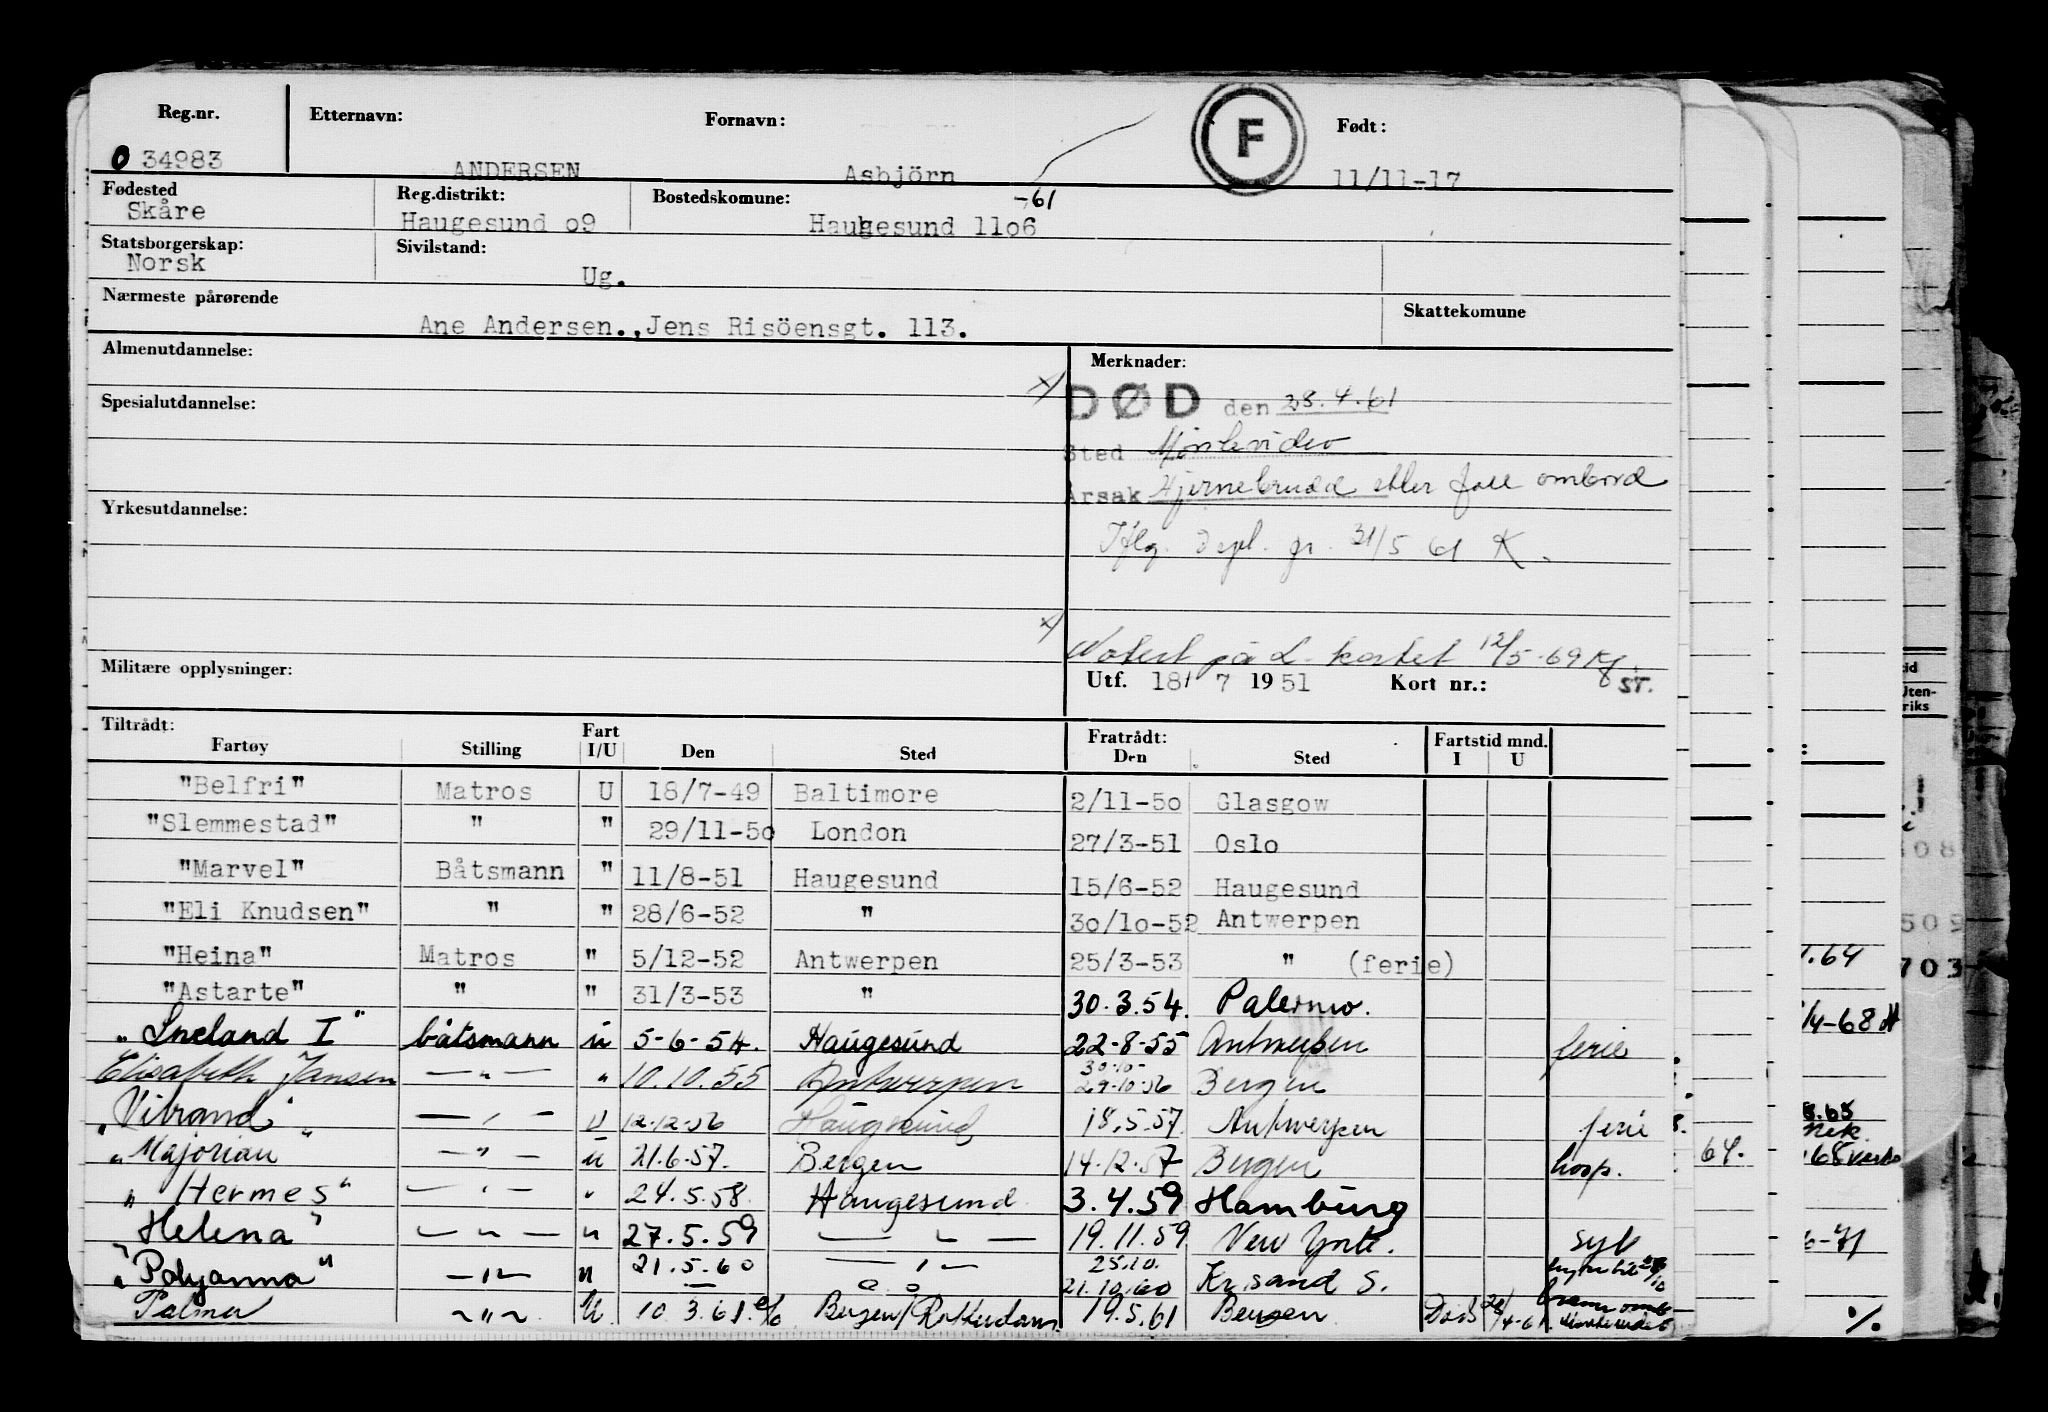 Reg.nr. Etternavn: Fornavn: F Født:
0 34983 ANDERSEN Asbjörn 11/11-17
Fødested Reg.distrikt: Bostedskomune: -61
Skåre Haugesund o9 Haugesund 11o6
Statsborgerskap: Sivilstand:
Norsk Ug.
Nærmeste pårørende Skattekomune
Ane Andersen.,Jens Risöensgt. 113.
Almenutdannelse: Merknader:
x) DØD den 28.4.61
Spesialutdannelse:
Sted Montevideo
Årsak Hjernebrudd etter fall ombord
Yrkesutdannelse:
Iflg. Dept. gr. 31/5 61 K.
x) Notert på L. kortet 12/5-69 Kf.
Militære opplysninger: Utf. 18/ 7 1951 Kort nr.: ST.
Tiltrådt: Fart Fratrådt: Fartstid mnd.
Fartøy Stilling I/U Den Sted Den Sted I U
"Belfri" Matros U 18/7-49 Baltimore 2/11-5o Glasgow
"Slemmestad" " " 29/11-5o London 27/3-51 Oslo
"Marvel" Båtsmann " 11/8-51 Haugesund 15/6-52 Haugesund
"Eli Knudsen" " " 28/6-52 " 3o/1o-52 Antwerpen
"Heina" Matros " 5/12-52 Antwerpen 25/3-53 " (ferie)
"Astarte" " " 31/3-53 " 30.3.54. Palermo.
"Sneland I" båtsmann u 5-6-54. Haugesund 22-8-55 Antwerpen ferie
Elisabeth Jansen — " — " 10.10.55 Antwerpen 30.10- 29.10.56 Bergen
"Vibrand" — " — U 12.12.56 Haugesund 18.5.57. Antwerpen ferie
"Majorian — " — u 21.6.57. Bergen 14.12.57 Bergen hosp.
"Hermes" — " — " 24.5.58. Haugesund 3.4.59 Hamburg
Helena" — " — " 27.5.59 — " — 19.11.59 New York. syk
"Pohjanna" — " — " 21.5.60 — " — 25.10. 21.10.60 Kr.sand S.
Palma — " — U. 10.3.61. Bergen/Rotterdam. 19.5.61 Bergen Død 28/4-61